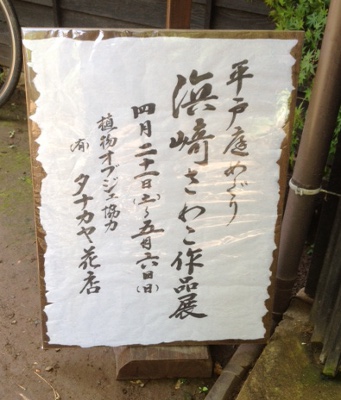 平戸庭めぐり
浜崎さわこ作品展
四月二十一日(土)〜五月六日(日)
植物オブジェ協力
(有)タナカヤ花店